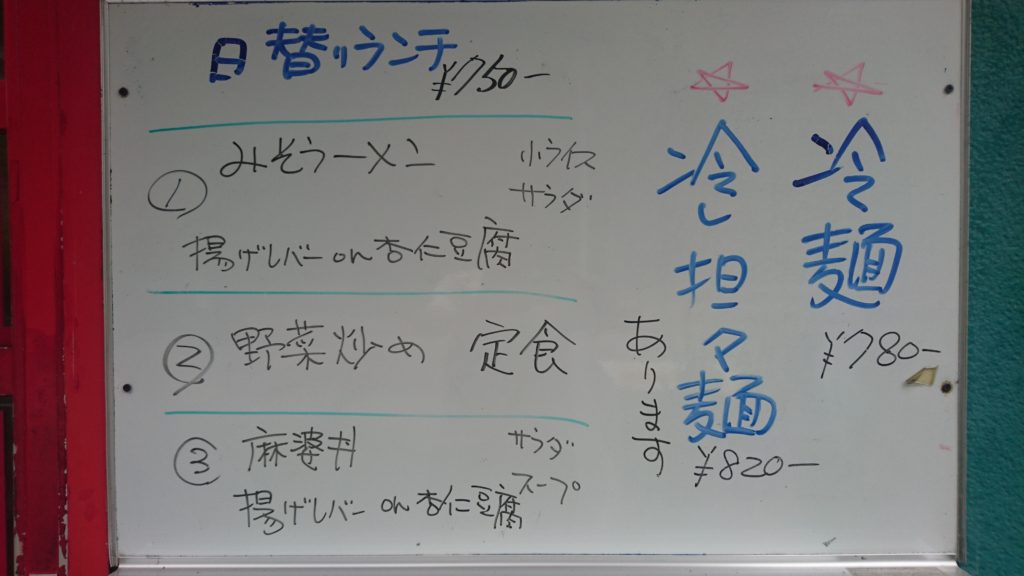 日替りランチ
¥750-
① みそラーメン 小ライス
サラダ
揚げレバー or 杏仁豆腐
② 野菜炒め 定食
③ 麻婆丼 サラダ
スープ
揚げレバー or 杏仁豆腐
☆冷麺
¥780-
☆冷し担々麺
¥820-
あります